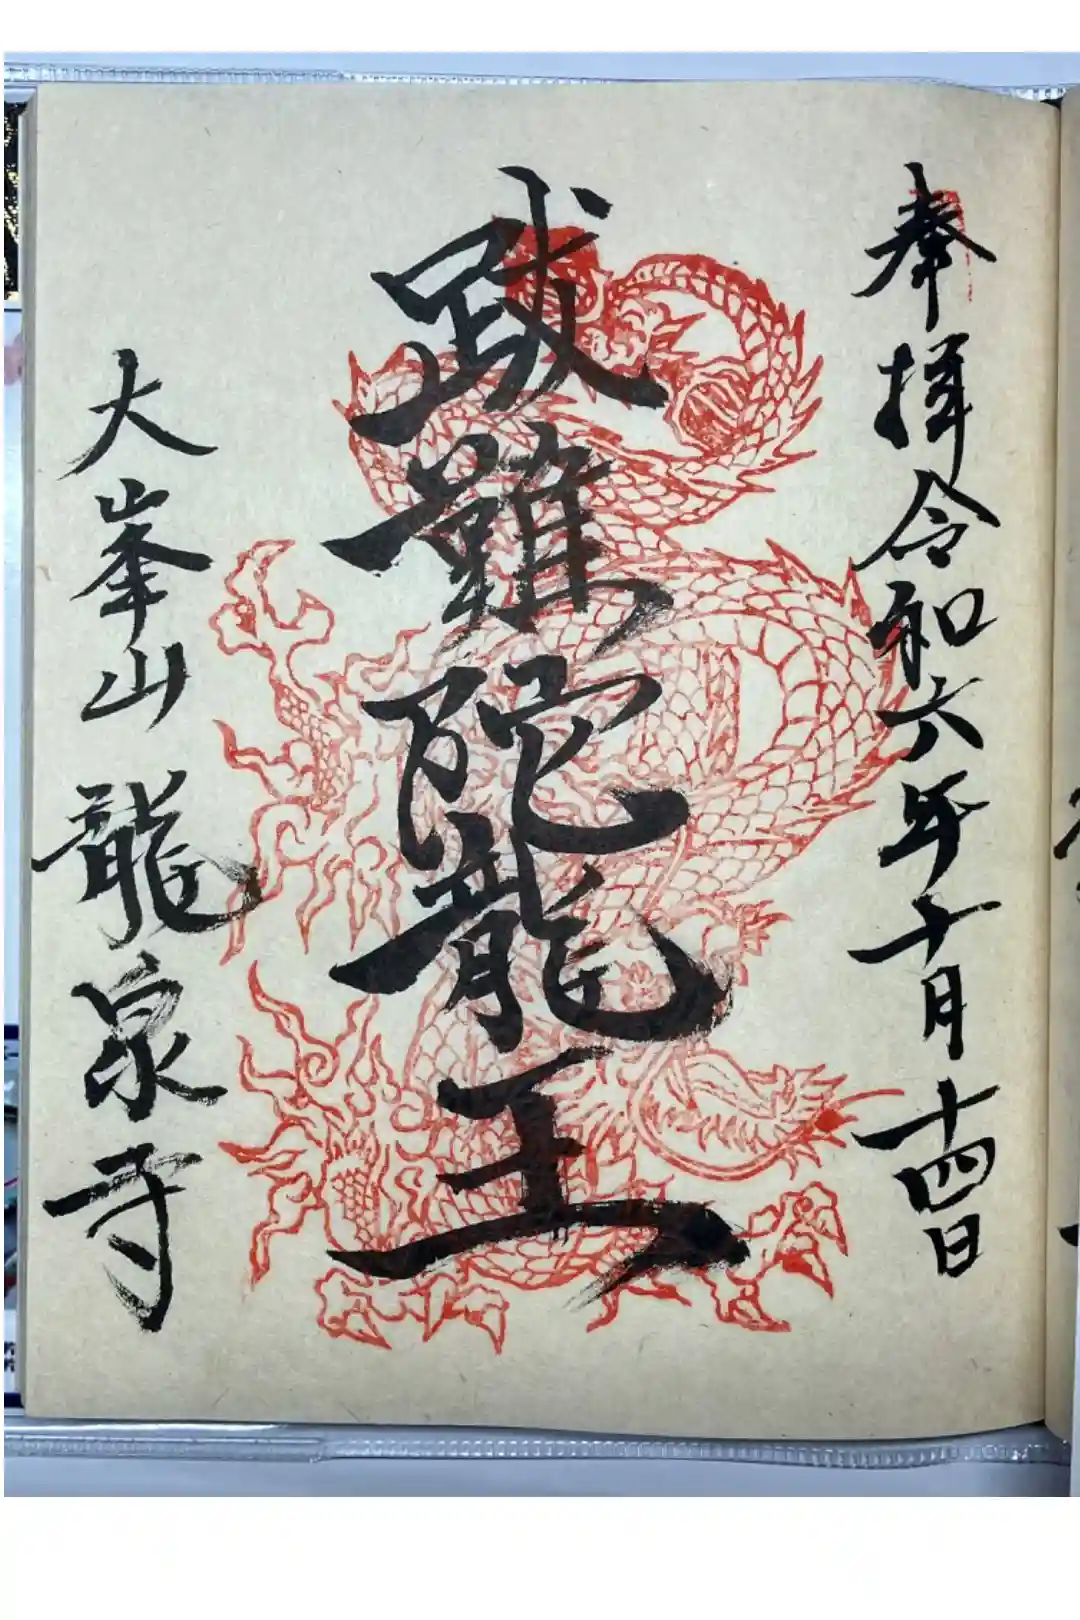 奉拝 令和六年十月十四日
跋難陀龍王
大峯山 龍泉寺